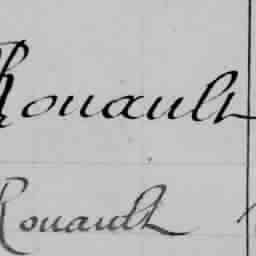 Rouault
Rouault